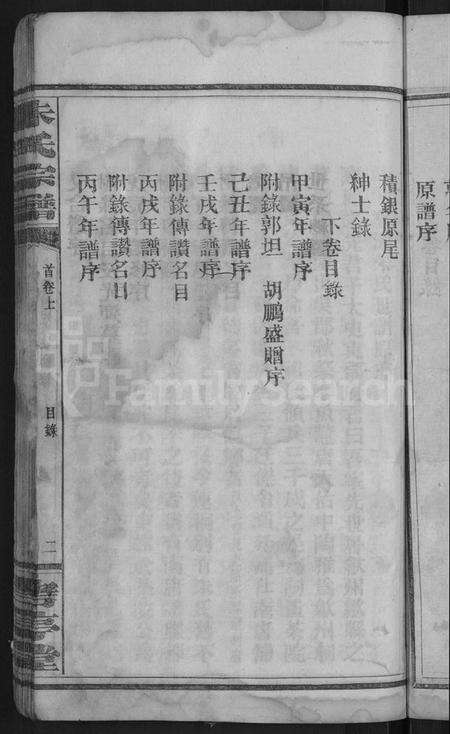 原譜序
積銀原尾
紳士錄
下卷目錄
甲寅年譜序
附錄郭坦 胡鵬盛贈序
己丑年譜序
壬戌年譜序
附錄傳讚名目
丙戌年譜序
附錄傳讚名目
丙午年譜序
朱氏宗譜
首卷上
目錄
二
FamilySearch